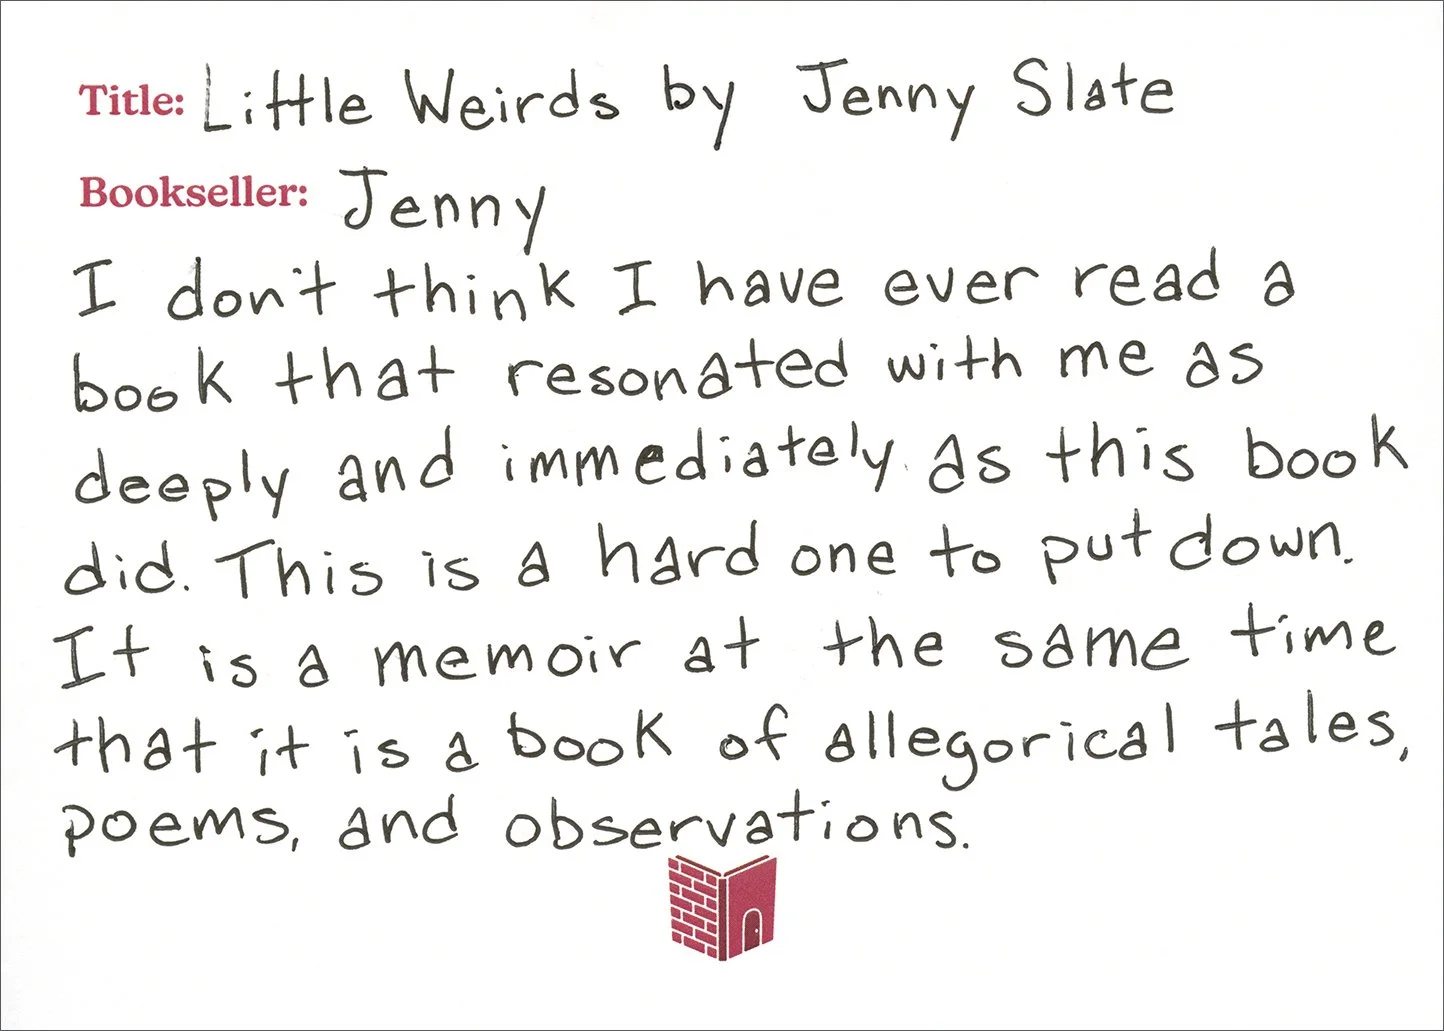 Title: Little Weirds by Jenny Slate
Bookseller: Jenny
I don't think I have ever read a
book that resonated with me as
deeply and immediately as this book
did. This is a hard one to put down.
It is a memoir at the same time
that it is a book of allegorical tales,
poems, and observations.